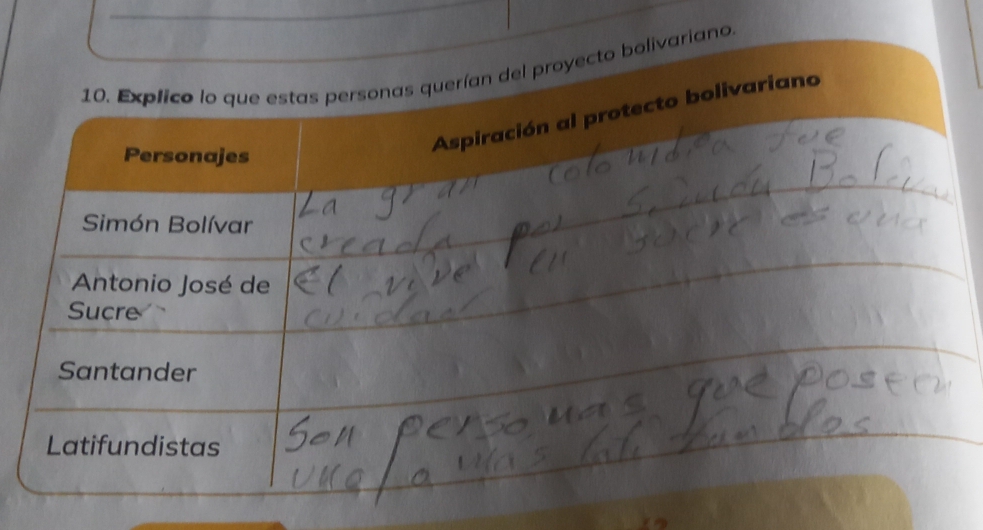 10. Explico lo que estas personas querían del proyecto bolivariano.
Personajes
Aspiración al protecto bolivariano
Simón Bolívar
La gran colombia fue
creada por Simón Bolivar
Antonio José de
Sucre
el vive en sucre es una
cuidad
Santander
Latifundistas
Son personas que poseen
uno o mas latifundios